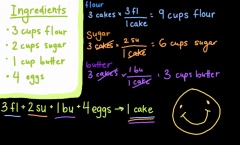 Ingredients
• 3 cups flour
• 2 cups sugar
• 1 cup butter
• 4 eggs
flour
3 cakes × 3 fl / 1 cake = 9 cups flour
Sugar
3 cakes × 2 su / 1 cake = 6 cups sugar
butter
3 cakes × 1 bu / 1 cake = 3 cups butter
3 fl + 2 su + 1 bu + 4 eggs → 1 cake